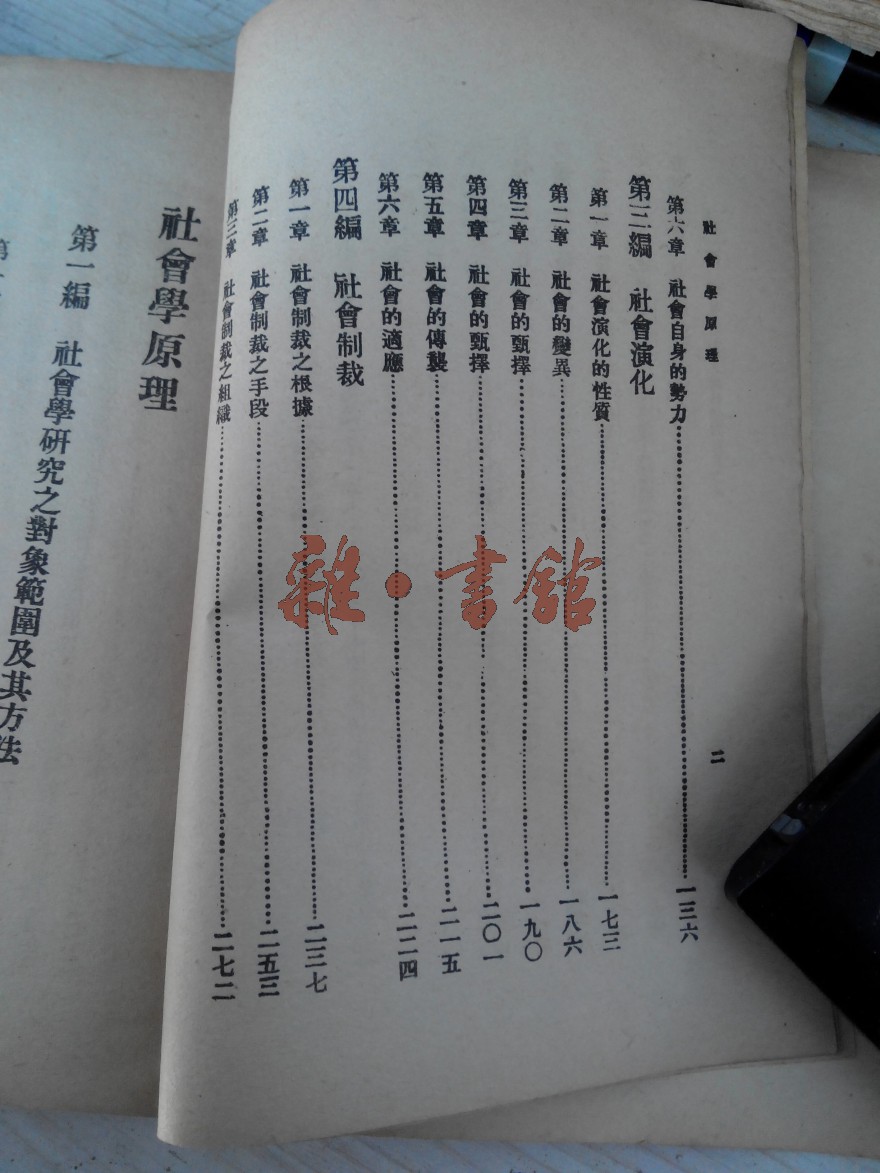 社會學原理
二
第六章 社會自身的勢力……一三六
第三編 社會演化
第一章 社會演化的性質……一七三
第二章 社會的變異……一八六
第三章 社會的甄擇……一九〇
第四章 社會的甄擇……二〇一
第五章 社會的傳襲……二一五
第六章 社會的適應……二二四
第四編 社會制裁
第一章 社會制裁之根據……二三七
第二章 社會制裁之手段……二五三
第三章 社會制裁之組織……二七二
社會學原理
第一編 社會學研究之對象範圍及其方法
雜·書館